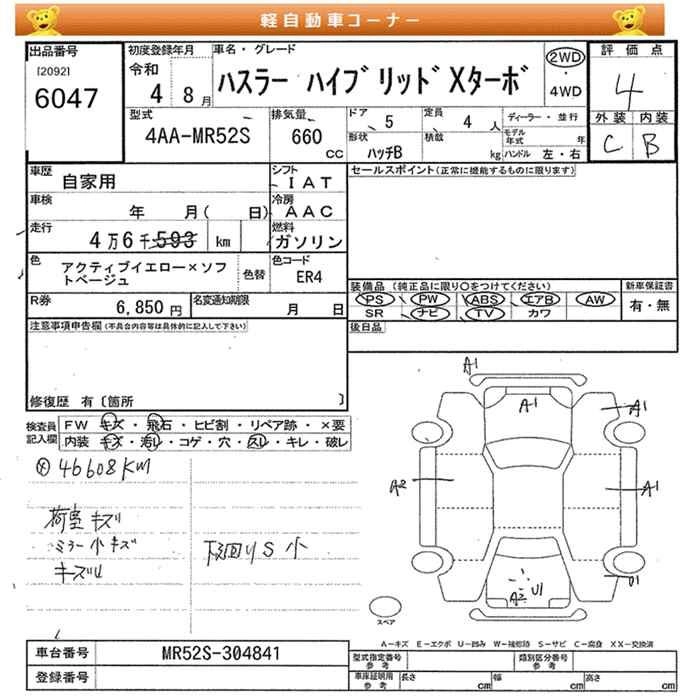 軽自動車コーナー
出品番号
[2092]
6047
初度登録年月
令和
4 8月
車名・グレード
ハスラー ハイブリッドXターボ
2WD
・
4WD
評価点
4
外装 内装
C B
型式
4AA-MR52S
排気量
660
CC
ドア
5
形状
ハッチB
定員
4 人
積載
kg
ディーラー・並行
モデル年式 年
ハンドル 左・右
車歴
自家用
車検
年 月( 日)
走行
4万6千593 km
色
アクティブイエロー×ソフ
トベージュ
色替
シフト
IAT
冷房
AAC
燃料
ガソリン
色コード
ER4
セールスポイント(正常に機能するものに限ります)
R券
6,850円
名変通知期限
月 日
装備品 (純正品に限り○をつけてください)
PS PW ABS エアB AW
SR ナビ TV カワ
新車保証書
有・無
注意事項申告欄(不具合内容等は具体的に記入して下さい)
後日品
修復歴 有 〔箇所 〕
検査員
記入欄
FW キズ・飛石・ヒビ割・リペア跡・×要
内装 キズ・汚レ・コゲ・穴・スレ・キレ・破レ
46608KM
荷室キズ
ミラー小キズ
キズU
下回りS小
A1
A1
A1
A2
A1
U1
A2 U1
スペア
A-キズ E-エクボ U-凹み W-補修跡 S-サビ C-腐食 XX-交換済
車台番号
MR52S-304841
登録番号
型式指定番号
参考
類別区分番号
参考
車庫証明用
参考
長さ cm
幅 cm
高さ cm